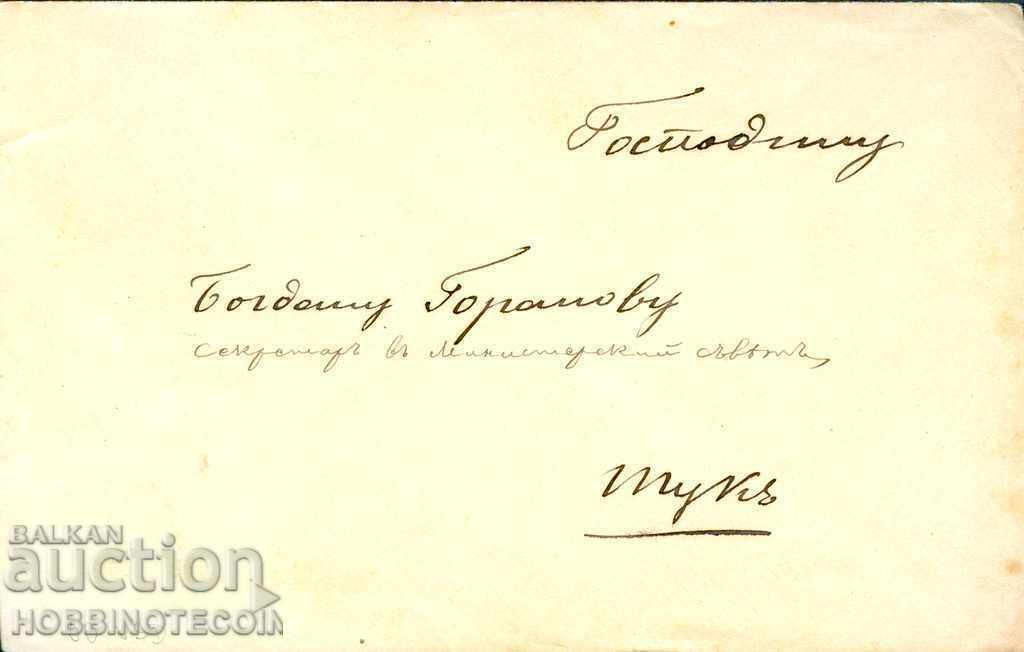 Господину
Богдану Горанову
секретаръ въ Министерский съвѣтъ,
тукъ
BALKAN
auction
HOBBINOTECOIN